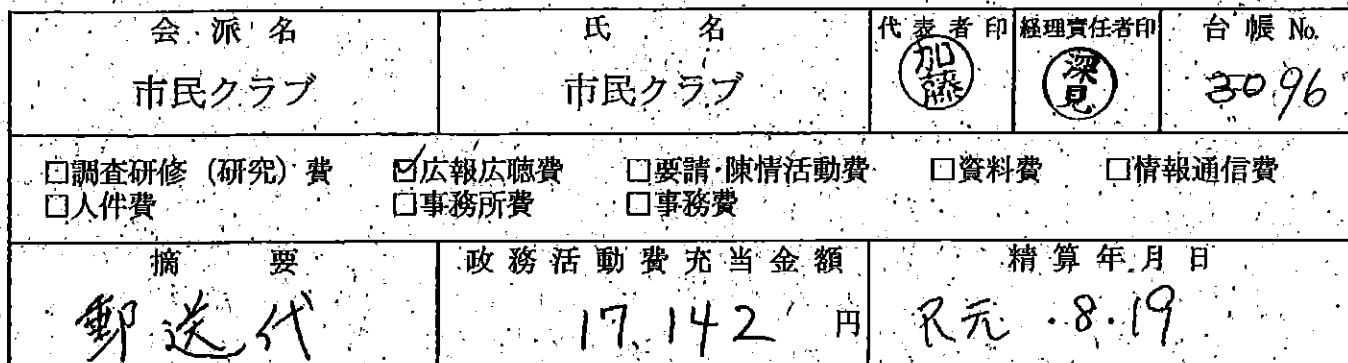 会派名 氏名 代表者印 経理責任者印 台帳No.
市民クラブ 市民クラブ 加藤 深見 3096
□調査研修(研究)費 ☑広報広聴費 □要請・陳情活動費 □資料費 □情報通信費
□人件費 □事務所費 □事務費
摘要 政務活動費充当金額 精算年月日
郵送代 17,142円 R元.8.19